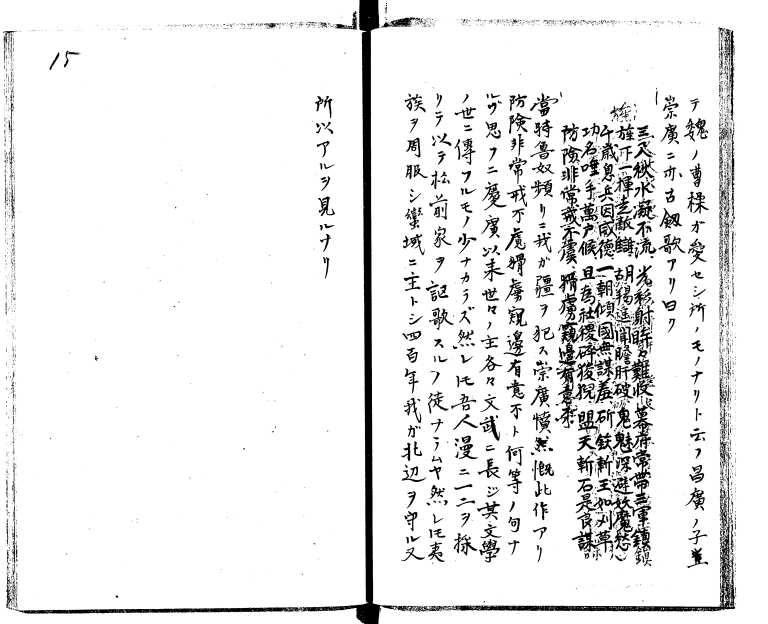 テ魏ノ曹操ガ愛セシ所ノモノナリト云フ昌廣ノ子
崇廣ニ亦古劔歌アリ曰ク
三尺秋水凝不流 光彩射眸難收 幕府常帶三軍鎮
旌下一揮走敵 胡羯遠聞膽肝破 鬼魅深避妖魔愁
千歳息兵因威德 一朝傾國無謀羞 斫鉄斬玉如刈草
功名唾手萬戸候 且為社稷碎狻猊 盟天斬石是良謀
防険非常戒不虞 猾虜窺邊有意不
當時魯奴頻リニ我ガ疆ヲ犯ス崇廣憤然慨此作アリ
防険非常戒不虞猾虜窺邊有意不ト何等ノ句ナ
ルゾ思フニ慶廣以来世々ノ主各々文武ニ長ジ其文學
ノ世ニ傳フルモノ少ナカラズ然レ𪜈吾人漫ニ一二ヲ採
リテ以テ松前家ヲ謳歌スルノ徒ナラムヤ然レ𪜈夷
族ヲ周服シ蠻域ニ主トシ四百年我ガ北辺ヲ守ル又
所以アルヲ見ルナリ
15